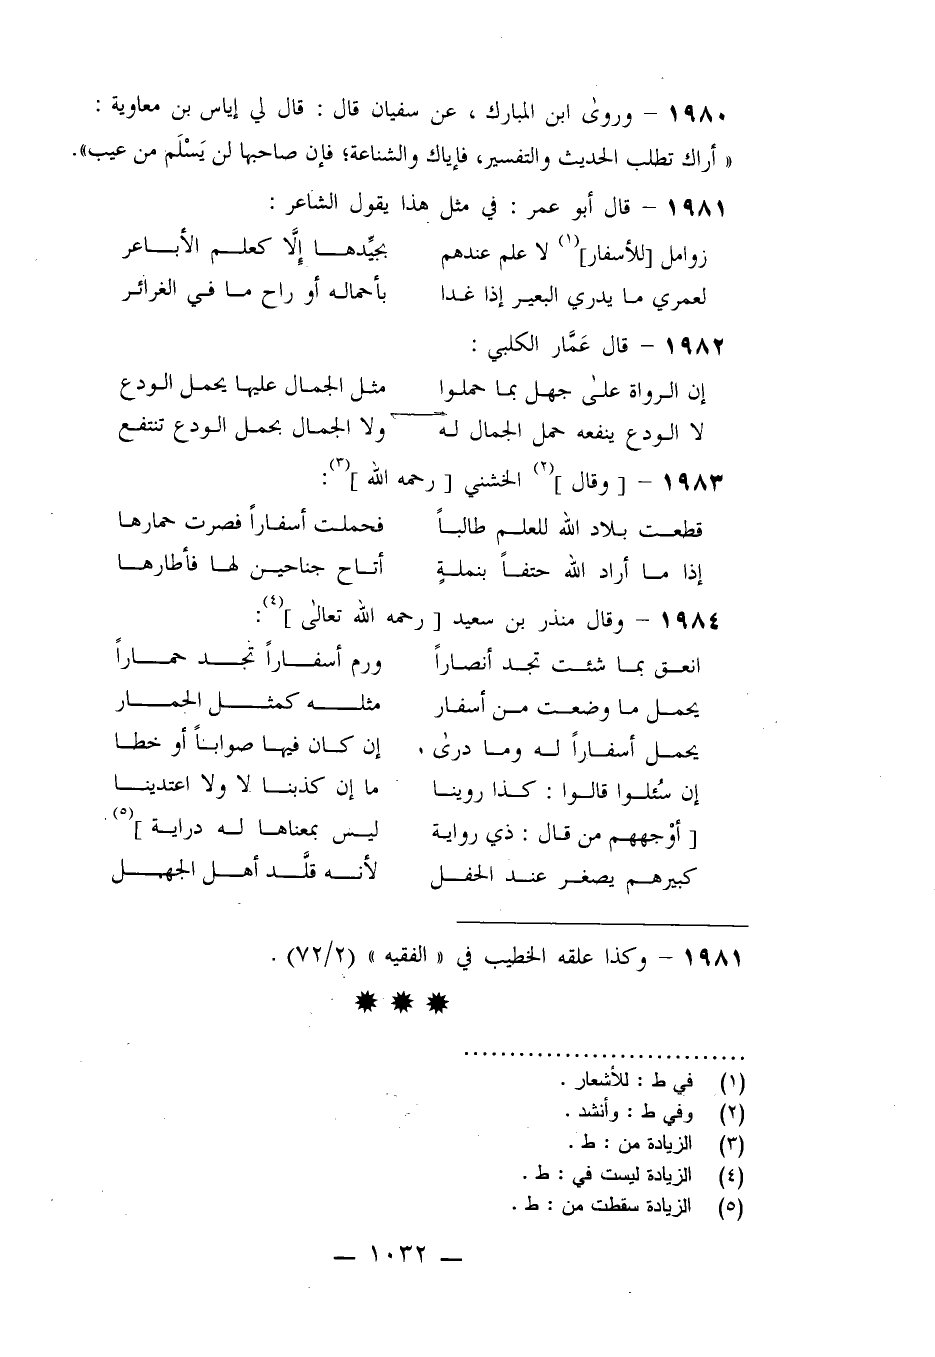 ١٩٨٠ – وروىٰ ابن المبارك ، عن سفيان قال : قال لي إياس بن معاوية :
« أراك تطلب الحديث والتفسير، فإياك والشناعة؛ فإن صاحبها لن يَسْلَم من عيب».
١٩٨١ – قال أبو عمر : في مثل هذا يقول الشاعر :
زوامل [للأسفار](١) لا علم عندهم بجيِّدهـا إلَّا كعلـم الأبـاعر
لعمري مـا يدري البعير إذا غـدا بأحماله أو راح مـا فـي الغرائـر
١٩٨٢ – قال عَمَّار الكلبي :
إن الـرواة علـىٰ جهـل بمـا حملـوا مثـل الجمـال عليهـا يحمـل الـودع
لا الـودع ينفعـه حمـل الجمـال لـه ولا الجمـال بحمـل الـودع تنتفـع
١٩٨٣ – [ وقال ](٢) الخشني [ رحمه الله ](٣):
قطعـت بـلاد الله للعلـم طالبـاً فحملـت أسفـاراً فصرت حمارهـا
إذا مـا أراد الله حتفـاً بنملـةٍ أتـاح جناحيـن لهـا فأطارهـا
١٩٨٤ – وقال منذر بن سعيد [ رحمه الله تعالىٰ ](٤):
انعـق بمـا شئـت تجـد أنصـاراً ورم أسفـاراً تجـد حمـاراً
يحمـل مـا وضعـت مـن أسفـار مثلـه كمثـل الحمـار
يحمـل أسفـاراً لـه ومـا درىٰ إن كـان فيهـا صوابـاً أو خطـا
إن سُئلـوا قالـوا : كـذا روينـا مـا إن كذبنـا لا ولا اعتدينـا
[ أوْجههـم مـن قـال : ذي روايـة ليـس بمعناهـا لـه درايـة ](٥).
كبيرهـم يصغـر عنـد الحفـل لأنـه قلَّـد أهـل الجهـل
١٩٨١ – وكذا علقه الخطيب في « الفقيه » (٧٢/٢) .
(١) في ط : للأشعار .
(٢) وفي ط : وأنشد .
(٣) الزيادة من : ط .
(٤) الزيادة ليست في : ط .
(٥) الزيادة سقطت من : ط .
– ١٠٣٢ –